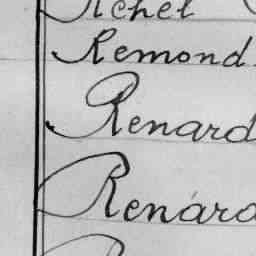 Remond
Renard
Renard